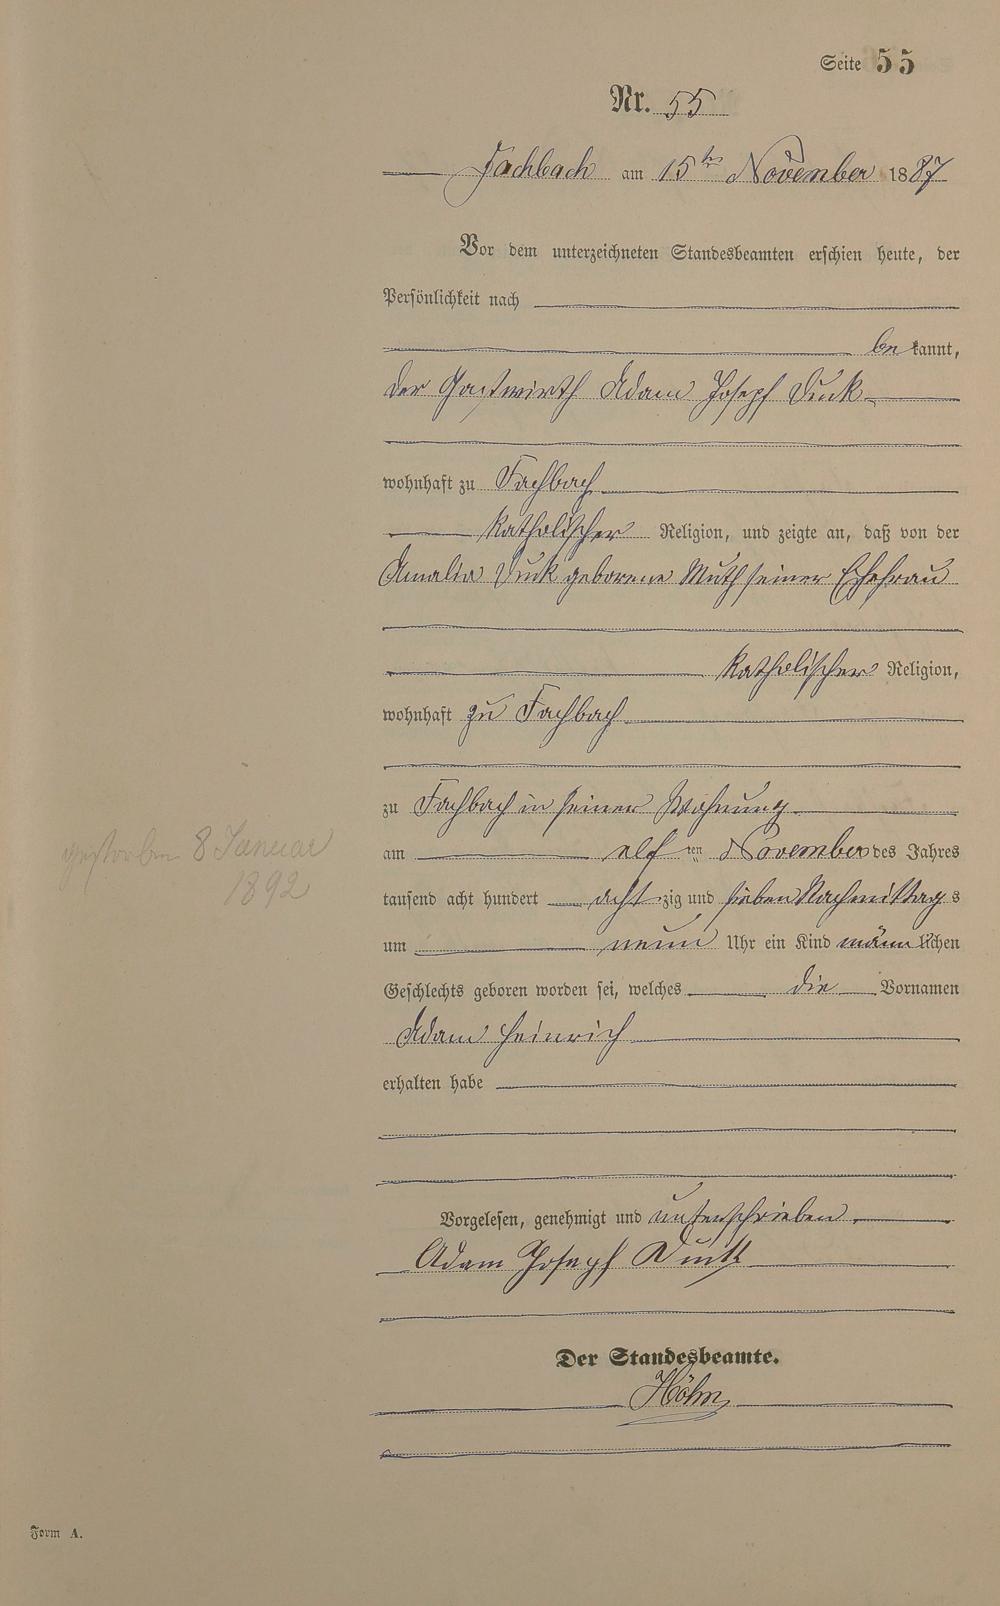 Seite 55
Nr. 55
Fachbach am 15ten November 1887
Vor dem unterzeichneten Standesbeamten erschien heute, der
Persönlichkeit nach
be kannt,
der Gastwirth Adam Joseph Dunk
wohnhaft zu Fachbach
katholischer Religion, und zeigte an, daß von der
Amalia Dunk geborene Muth seiner Ehefrau
katholischer Religion,
wohnhaft zu Fachbach
zu Fachbach in seiner Wohnung
am elf ten November des Jahres
tausend acht hundert acht zig und sieben Nachmittag s
um neun Uhr ein Kind männ lichen
Geschlechts geboren worden sei, welches die Vornamen
Adam Heinrich
erhalten habe
gestorben 8 Januar
1892
Vorgelesen, genehmigt und unterschrieben.
Adam Joseph
Der Standesbeamte.
Höhn
Form A.